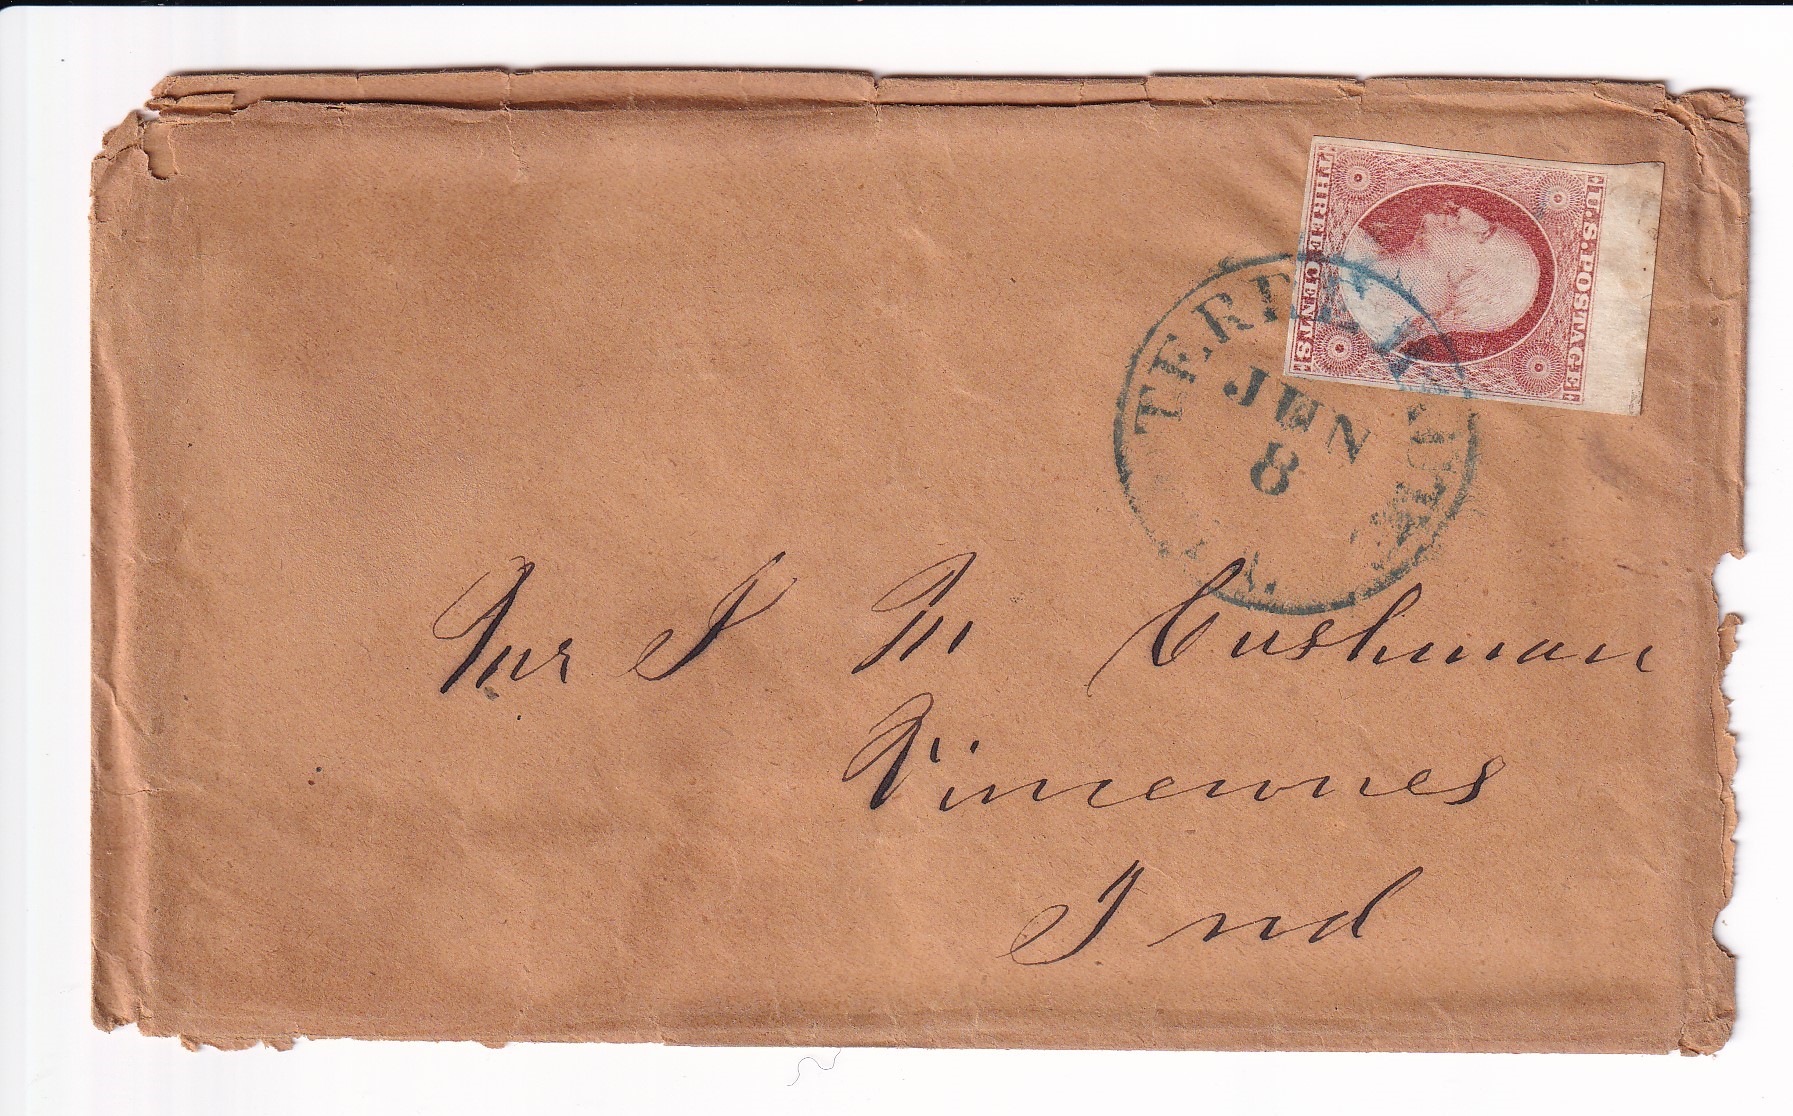 U.S. POSTAGE
THREE CENTS
TERRE HAUTE
JUN
8
Mr J M Cushman
Vincennes
Ind